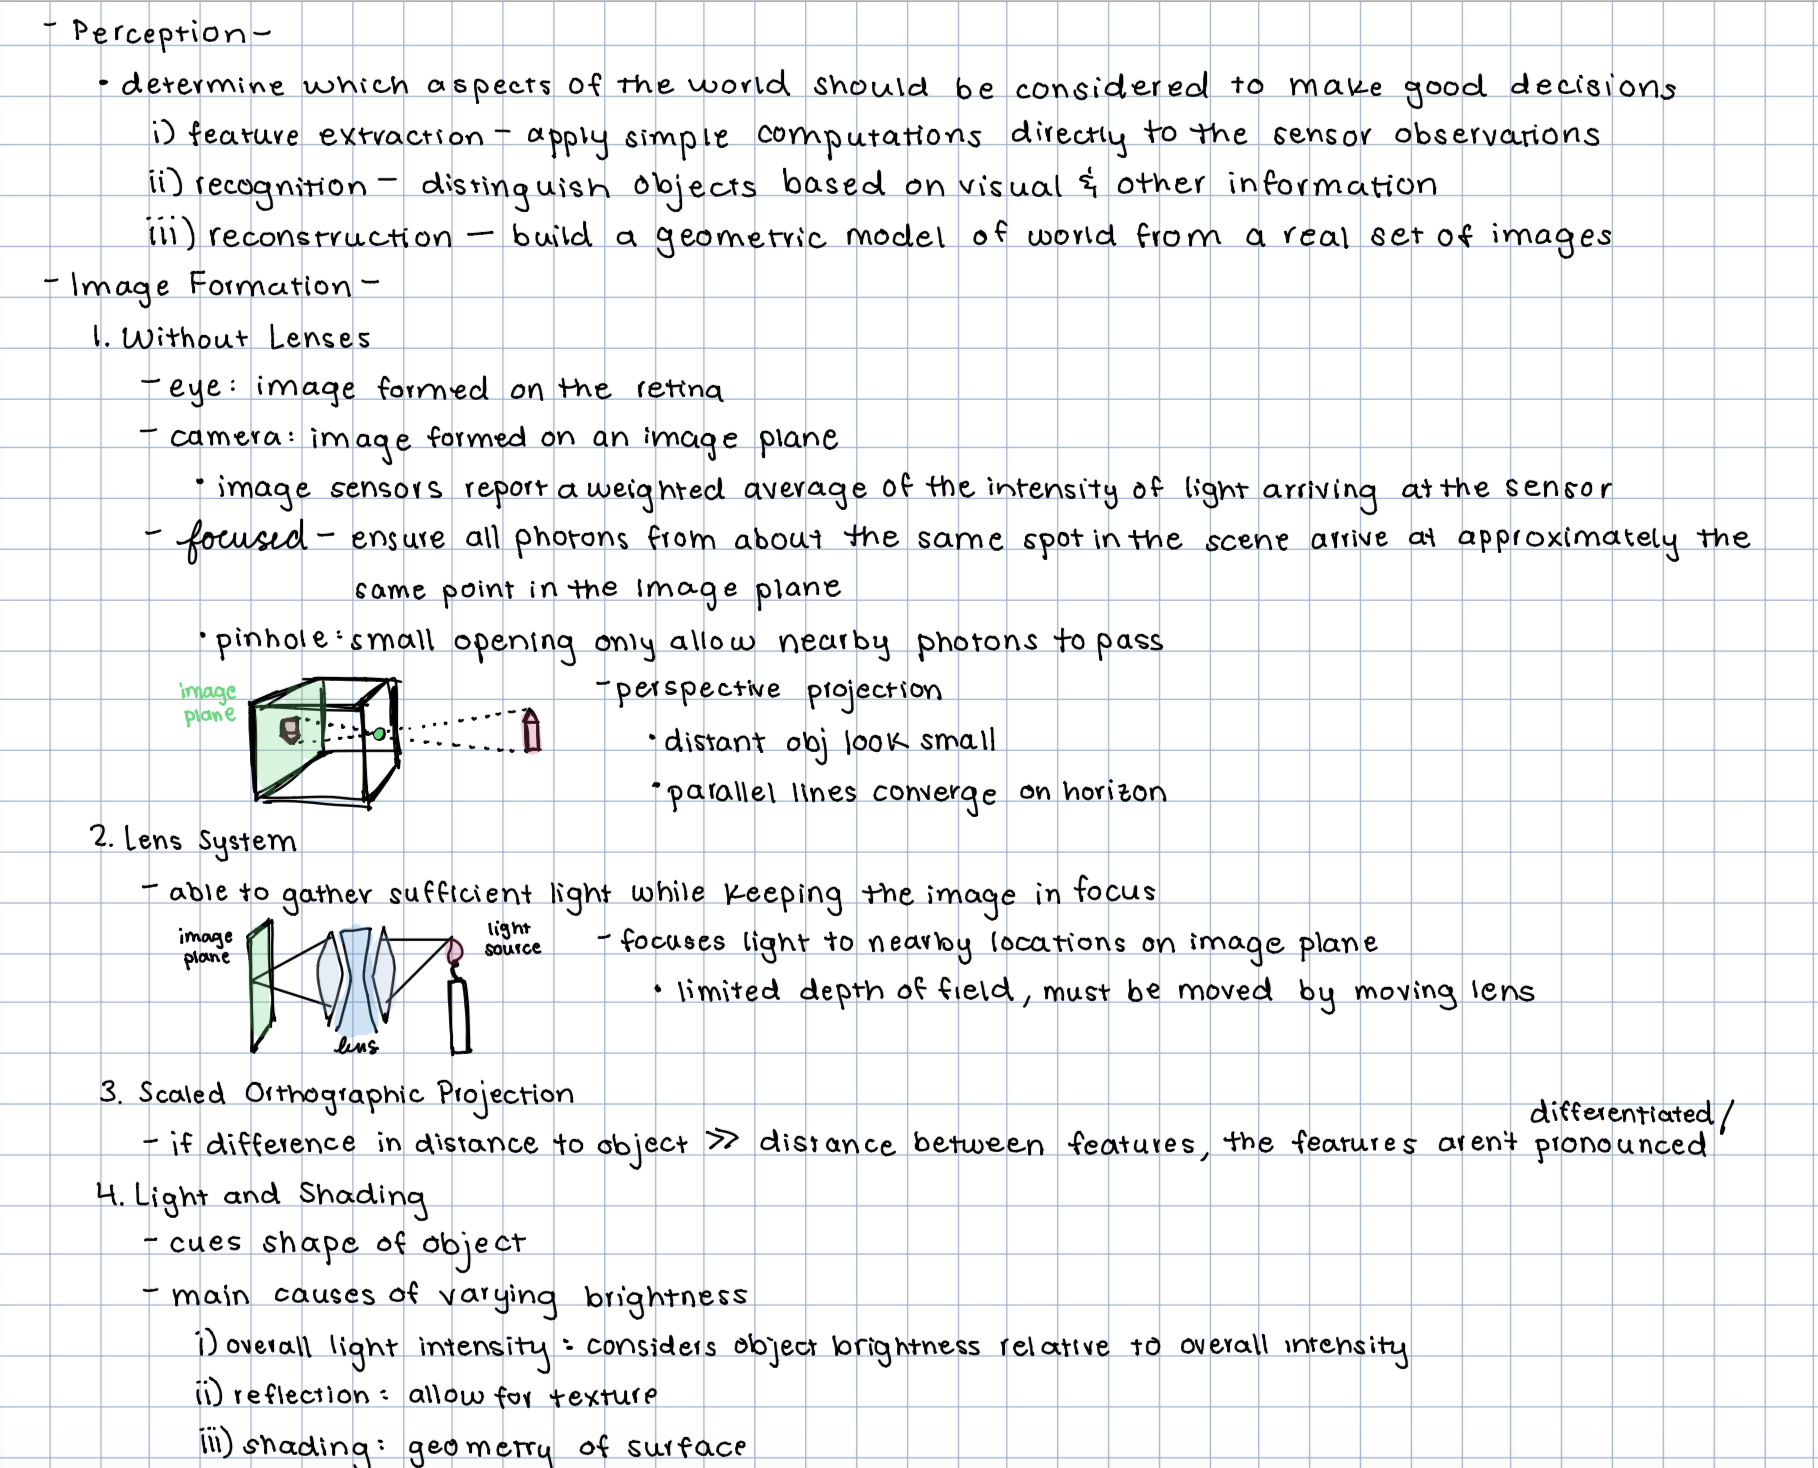 - Perception -
• determine which aspects of the world should be considered to make good decisions
i) feature extraction - apply simple computations directly to the sensor observations
ii) recognition - distinguish objects based on visual & other information
iii) reconstruction - build a geometric model of world from a real set of images
- Image Formation -
1. Without Lenses
- eye: image formed on the retina
- camera: image formed on an image plane
• image sensors report a weighted average of the intensity of light arriving at the sensor
- focused - ensure all photons from about the same spot in the scene arrive at approximately the
same point in the image plane
• pinhole: small opening only allow nearby photons to pass
image
plane
- perspective projection
• distant obj look small
• parallel lines converge on horizon
2. Lens System
- able to gather sufficient light while keeping the image in focus
image
plane
lens
light
source
- focuses light to nearby locations on image plane
• limited depth of field, must be moved by moving lens
3. Scaled Orthographic Projection
differentiated/
- if difference in distance to object >> distance between features, the features aren't pronounced
4. Light and Shading
- cues shape of object
- main causes of varying brightness
i) overall light intensity: considers object brightness relative to overall intensity
ii) reflection: allow for texture
iii) shading: geometry of surface